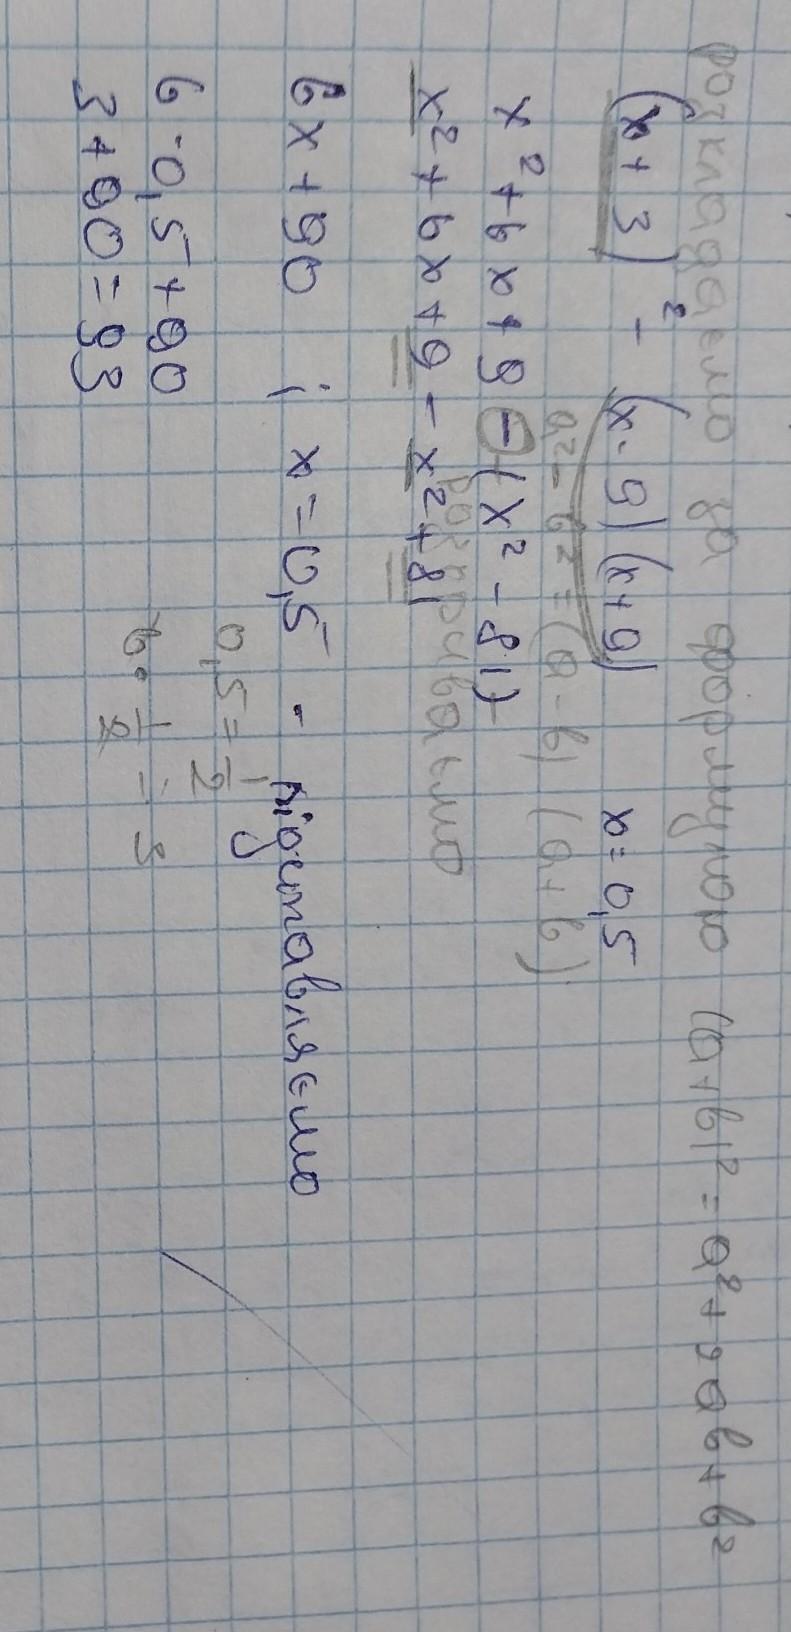 розкладаємо за формулою (a+b)² = a² + 2ab + b²
(x + 3)² - (x - 9)(x + 9) x = 0,5
a² - b² = (a - b) (a + b)
x² + 6x + 9 - (x² - 81)
розкриваємо
x² + 6x + 9 - x² + 81
6x + 90 ; x = 0,5 - підставляємо
0,5 = 1/2
6 · 0,5 + 90
6 · 1/2 = 3
3 + 90 = 93